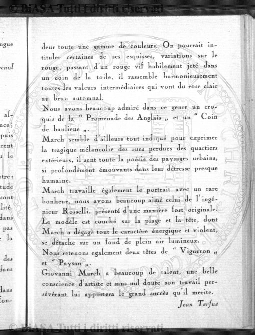 dent toute une gamme de couleurs. On pourrait in-
tituler certaines de ses esquisses, variations sur le
rouge, passant d'un rouge vif habilement jeté dans
un coin de la toile, il rassemble harmonieusement
toutes les valeurs intermédiaires qui vont du rose clair
au brun automnal.
Nous avons beaucoup admiré dans ce genre un cro-
quis de la " Promenade des Anglais " et un " Coin
de banlieue ".
March semble d'ailleurs tout indiqué pour exprimer
la tragique mélancolie des rues perdues des quartiers
extérieurs, il sent toute la poésie des paysages urbains,
si profondément émouvants dans leur détresse presque
humaine.
March travaille également le portrait avec un rare
bonheur, nous avons beaucoup aimé celui de l'ingé-
nieur Roselli, présenté d'une manière fort originale.
Le modèle est couché sur la plage et la tête, dont
March a dégagé tout le caractère énergique et violent,
se détache sur un fond de plein air lumineux.
Nous retenons également deux têtes de " Vigneron "
et " Paysan ".
Giovanni March a beaucoup de talent, une belle
conscience d'artiste et nous nul doute son travail per-
sévérant lui apportera le grand succès qu'il mérite.
Jean Tarfue